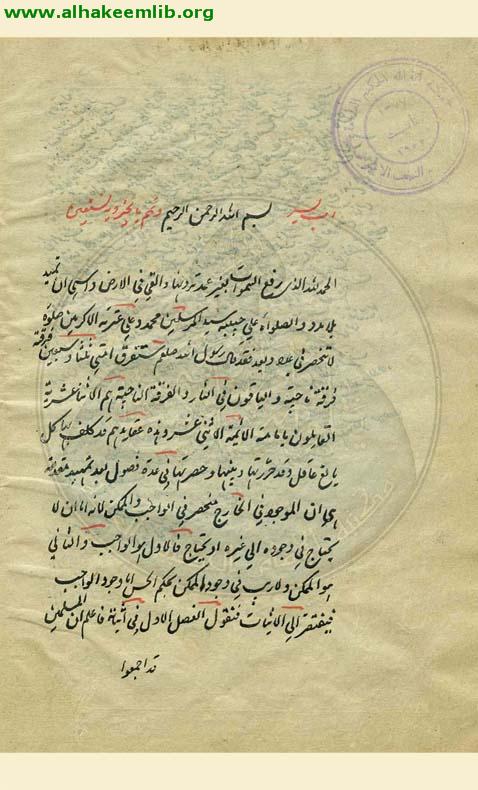 www.alhakeemlib.org
رب يسر بسم الله الرحمن الرحيم وتمم بالخير وبه نستعين
الحمد لله الذي رفع السموات بغير عمد ترونها والقي في الارض رواسي ان تميد
بلا مدد والصلواة علي حبيبه سيد المرسلين محمد وعلي عترته الاكرمين صلوة
لا تنحصر في عدد وبعد فقد قال رسول الله صلعم ستفترق امتي ثلثا وسبعين فرقة
فرقة ناجية والباقون في النار والفرقة الناجية هم الاثنا عشرية
القايلون بامامة الائمة الاثني عشر وهذه عقايدهم قد كلف بها كل
بالغ عاقل وقد حررتها وبينتها وحصرتها في عدة فصول بعد تمهيد مقدمة
هي ان الموجود في الخارج منحصر في الواجب والممكن لانه اما ان لا
يحتاج في وجوده الي غيره او يحتاج فالاول هو الواجب والثاني
هو الممكن ولا ريب في وجود الممكن بحكم الحس اما وجود الواجب
فيفتقر الي الاثبات فنقول الفصل الاول في اثباته فاعلم ان المسلمين
قد اجمعوا